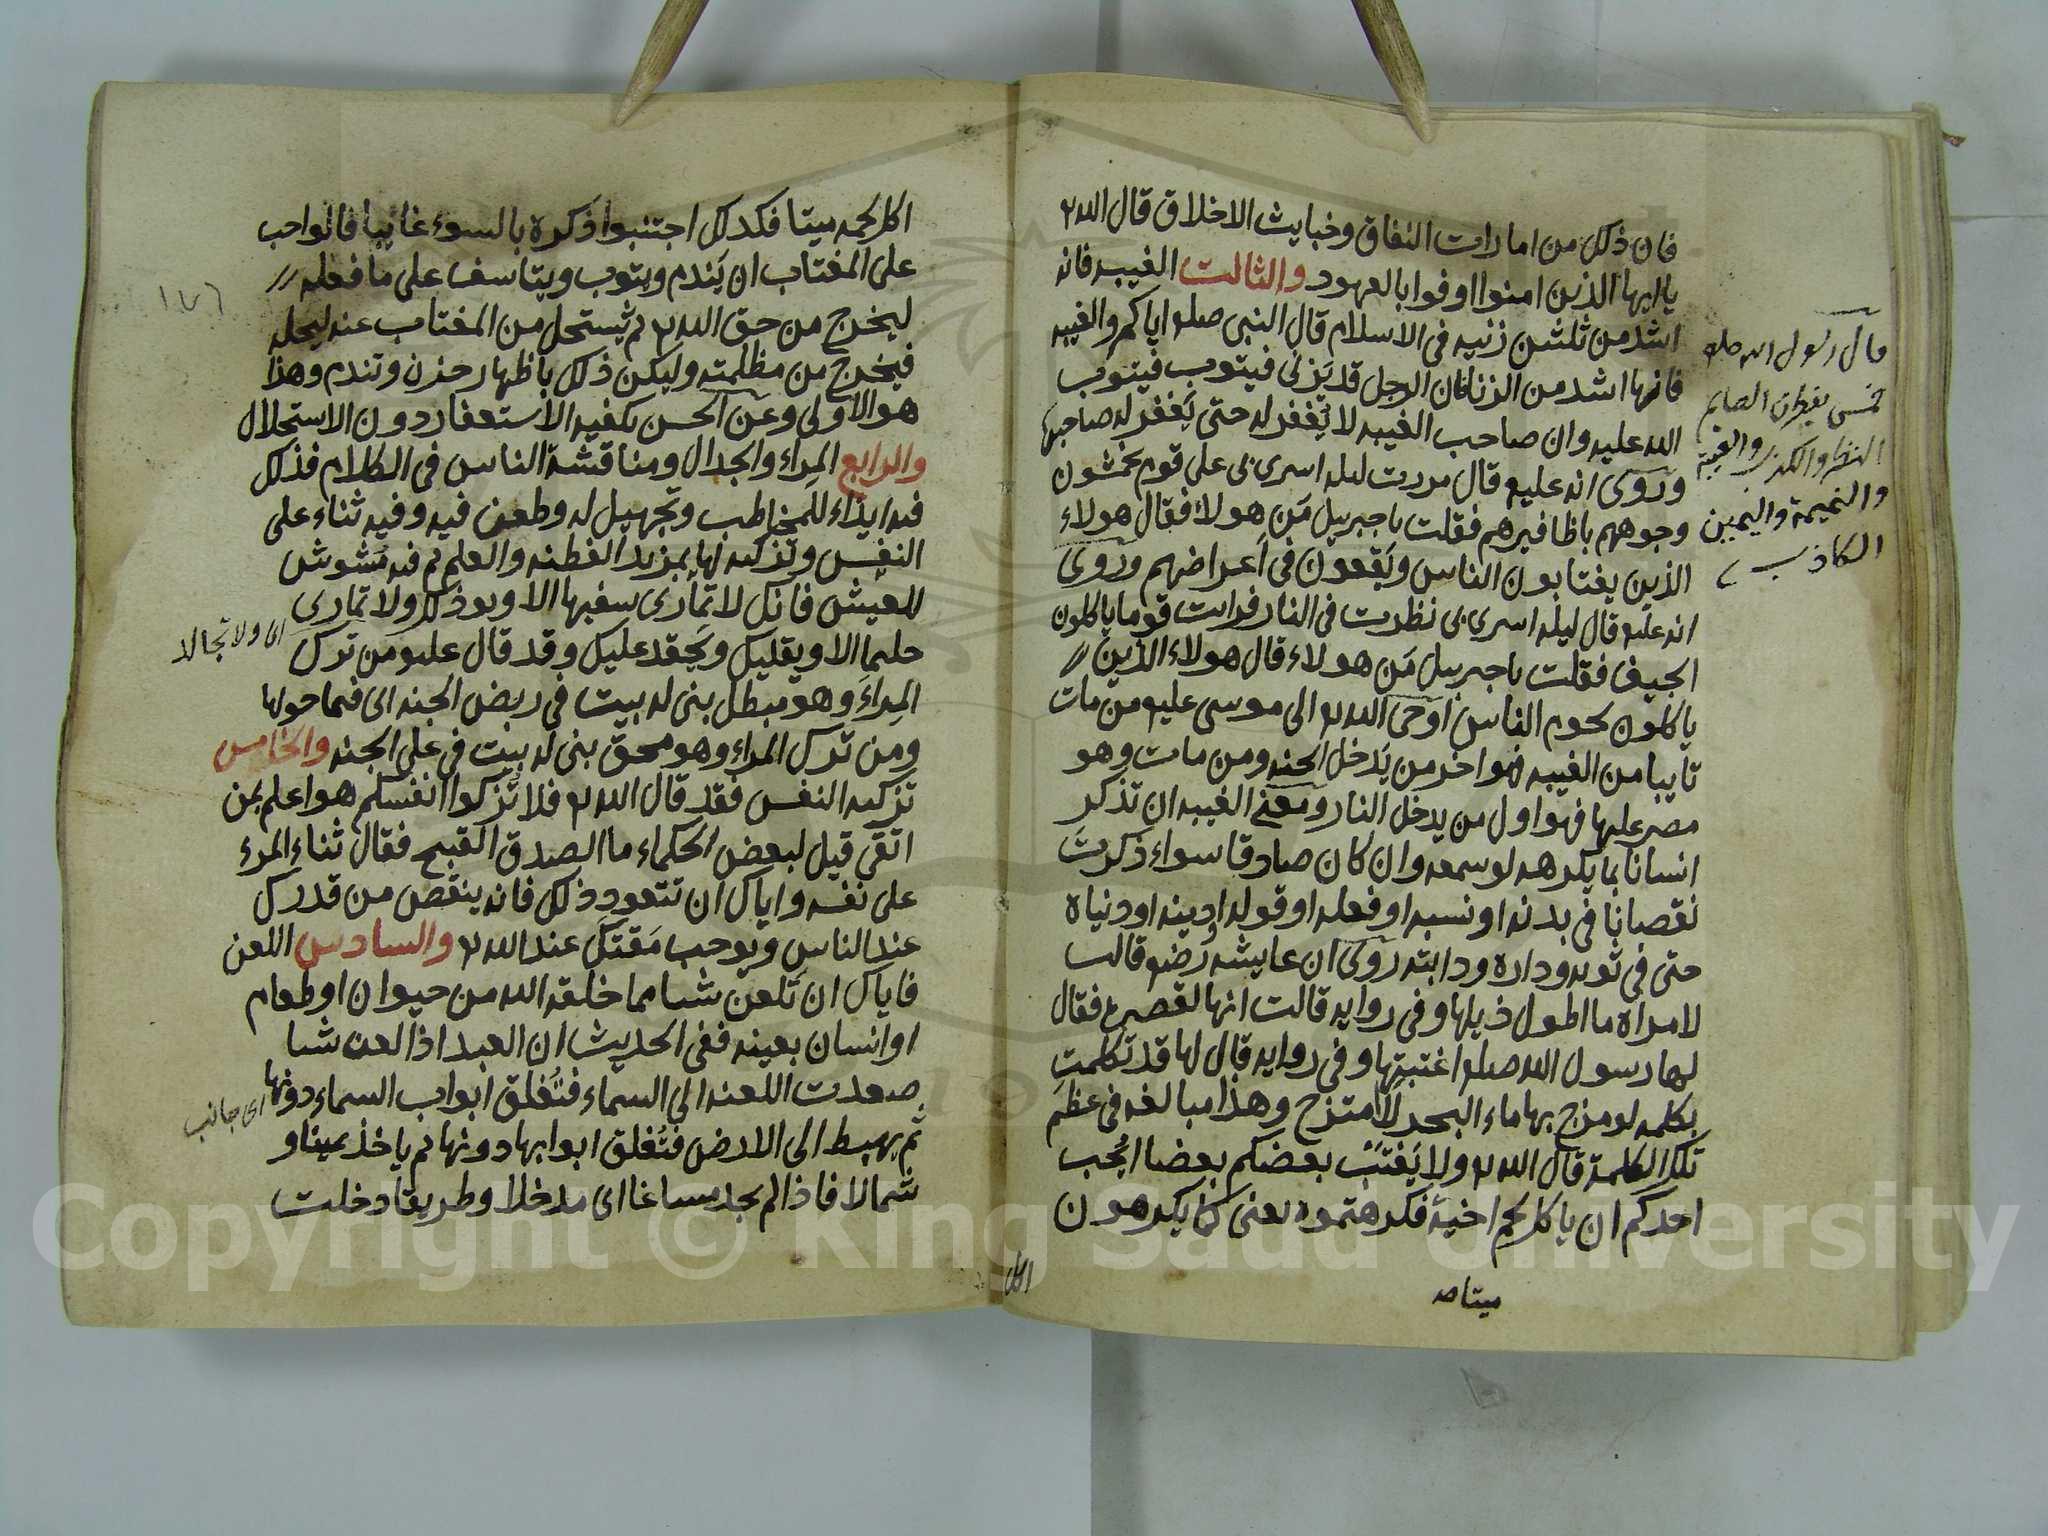 فان ذلك من امارات النفاق وخبايث الاخلاق قال الله ٢
يا ايها الذين امنوا اوفوا بالعهود والثالث الغيبه فانه
اشد من ثلثين زنيه فى الاسلام قال النبى صلم اياكم والغيبه
فانها اشد من الزنا فان الرجل قد يَزنى فيتوب فيتوب
الله عليه وان صاحب الغيبه لا يُغفر له حتى يَغفر له صاحبها
ورَوى انه عليه قال مررت ليله اسرى بى على قوم يخمشون
وجوههم باظافيرهم فقلت ياجبريل مَن هولاء فقال هولاء
الذين يغتابون الناس ويَقعون فى اعراضهم ورُوى
انه عليه قال ليله اسرى بى نظرت فى النار فرايت قوما ياكلون
الجيف فقلت ياجبريل مَن هولاء قال هولاء الذين
ياكلون لحوم الناس اوحى الله ٢ الى موسى عليه من مات
تايبا من الغيبه فهو اخر من يَدخل الجنه ومن مات وهو
مصر عليها فهو اول من يدخل النار ومعنى الغيبه ان تذكر
انسانا بما يكرهه لو سمعه وان كان صادقا سواء ذكرتَ
نقصانا فى بدنه او نسبه او فعله او قوله او دينه او دنياه
حتى فى ثوبه وداره ودابته رَوى ان عايشه رضى قالت
لامراة ما اطول ذيلها وفى روايه قالت انها لقصيرة فقال
لها رسول الله صلم اغتبتها وفى روايه قال لها قد تكلمتِ
بكلمه لو مزج بها ماء البحر لامتزج وهذا مبالغه فى عظم
تلك الكلمة قال الله ٢ ولا يَغتَبْ بعضكم بعضا ايُحب
احدكم ان ياكل لحم اخيه فكرهتموه يعنى كما يكرهون
ميتا صه
اكل
قال رسول الله صلم
خمس يفطرن الصايم
النظر والكذب والغيبة
والنميمة واليمين
الكاذب
اكل لحمه ميتا فكذلك اجتنبوا ذكره بالسوء غايبا فالواجب
على المغتاب ان يَندم ويتوب ويتاسف على ما فعله
ليخرج من حق الله ٢ ثم يُستحل من المغتاب عنه ليحله
فيخرج من مظلمته وليكن ذلك باظهار حزن وتندم وهذا
هو الاولى وعن الحسن يكفيه الاستغفار دون الاستحلال
والرابع المِراء والجدال ومناقشة الناس فى الكلام فذلك
فيه ايذاء للمخاطب وتجهيل له وطعن فيه وفيه ثناء على
النفس وتزكيه لها بمزيد الفطنه والعلم ثم فيه مُشوش
للعيش فانك لا تمارى سفيها الا ويوذيك ولا تمارى
حليما الا ويقليك ويَحقد عليك وقد قال عليه من ترك
المِراءَ وهو مبطل بنى له بيت فى ربض الجنه اى فيما حولها
ومن ترك المراء وهو محق بنى له بيت فى على الجنه والخامس
تزكيه النفس فقد قال الله ٢ فلا تُزكوا انفسكم هو اعلم بمن
اتقى قيل لبعض الحكماء ما الصدق القبيح فقال ثناء المرء
على نفسه واياك ان تتعود ذلك فانه ينقص من قدرك
عند الناس ويوجب مَقتك عند الله ٢ والسادس اللعن
فاياك ان تَلعن شيا مما خلقه الله من حيوان او طعام
او انسان بعينه ففى الحديث ان العبد اذا لعن شيا
صعدت اللعنه الى السماء فتُغلق ابواب السماء دونها
ثم يهبط الى الارض فتُغلق ابوابها دونها ثم ياخذ يمينا و
شمالا فاذا لم يجد مساغا اى مدخلا وطريقا دخلت
١٧٦
اى ولا تجادلا
اى جانب
Copyright © King Saud University